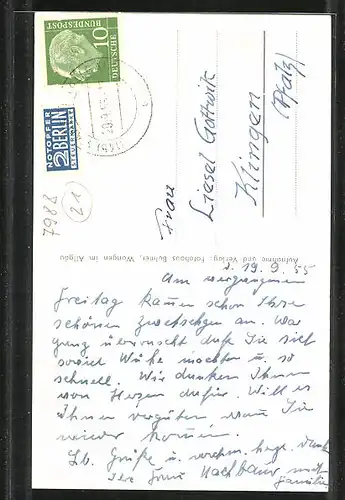 10
DEUTSCHE
BUNDESPOST
NOTOPFER
2 BERLIN
STEUERMARKE
7988
21
Frau
Liesel Gottwik
Klingen
(Pfalz)
Aufnahme und Verlag: Fotohaus Buhner, Wangen im Allgäu
d. 19. 9. 55
Am vergangenen
Freitag kamen schon Ihre
schönen Zwetschgen an. War
ganz überrascht daß Sie sich
soviel Mühe machten u. so
schnell. Wir danken Ihnen
von Herzen dafür. Will es
Ihnen vergüten wenn Sie
wieder kommen.
Lb. Grüße u. nochm. herzl. Dank
Frau Nachbaur mit
Familie